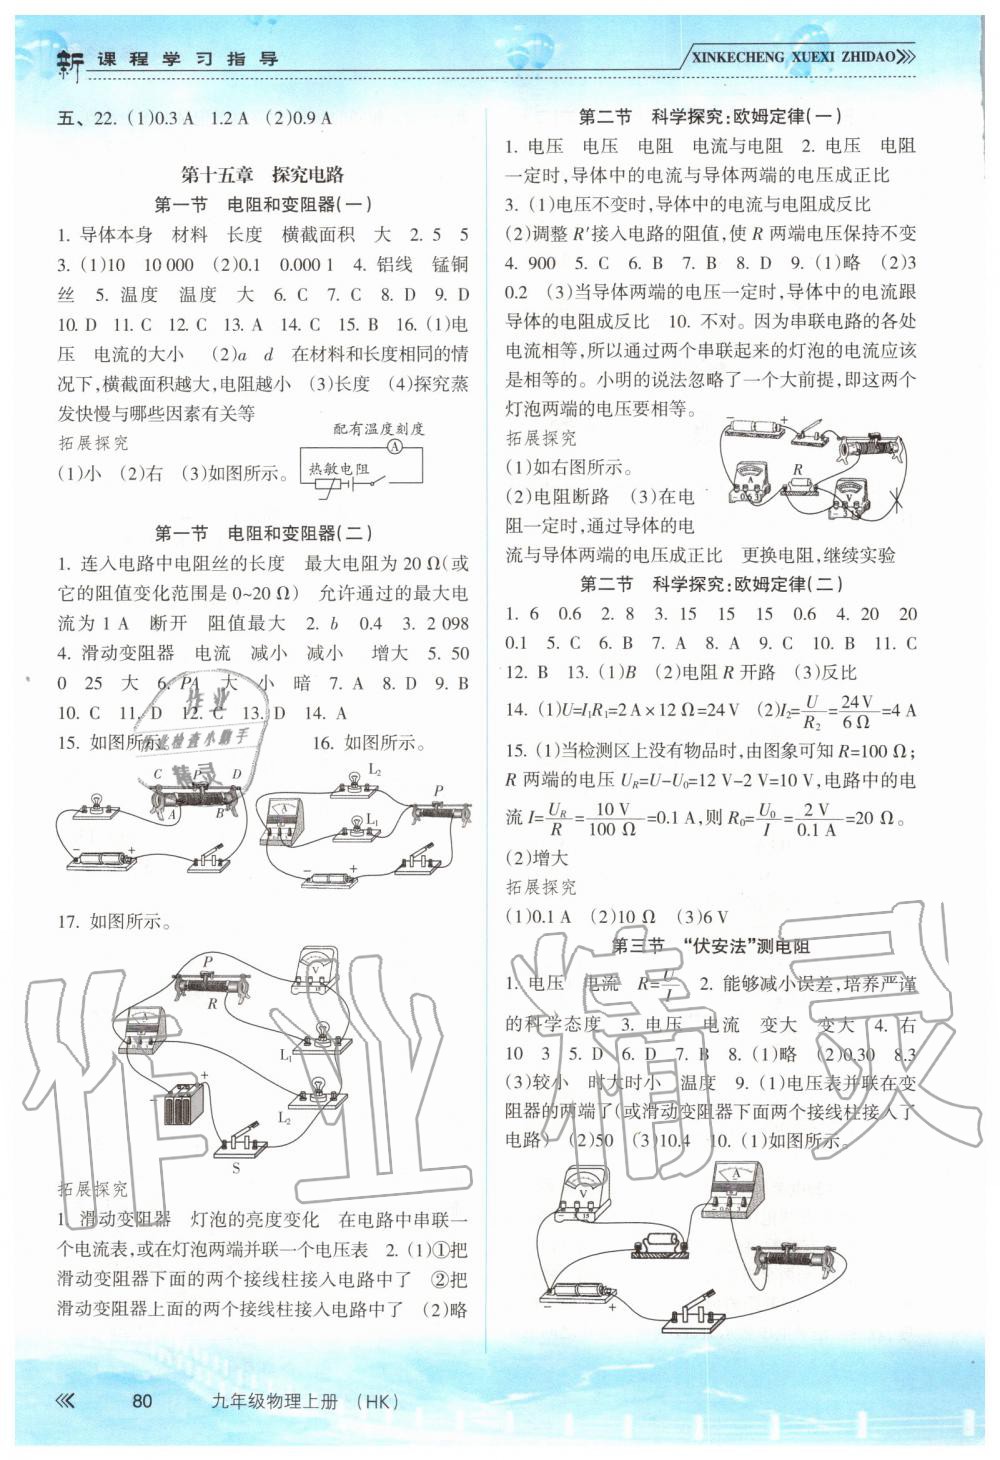 新课程学习指导
XINKECHENG XUEXI ZHIDAO
五、22. (1)0.3 A 1.2 A (2)0.9 A
第十五章 探究电路
第一节 电阻和变阻器(一)
1. 导体本身 材料 长度 横截面积 大 2. 5 5
3. (1)10 10 000 (2)0.1 0.000 1 4. 铝线 锰铜
丝 5. 温度 温度 大 6. C 7. C 8. D 9. D
10. D 11. C 12. C 13. A 14. C 15. B 16. (1)电
压 电流的大小 (2)a d 在材料和长度相同的情
况下,横截面积越大,电阻越小 (3)长度 (4)探究蒸
发快慢与哪些因素有关等
拓展探究
(1)小 (2)右 (3)如图所示。
配有温度刻度
A
热敏电阻
第一节 电阻和变阻器(二)
1. 连入电路中电阻丝的长度 最大电阻为 20 Ω(或
它的阻值变化范围是 0~20 Ω) 允许通过的最大电
流为 1 A 断开 阻值最大 2. b 0.4 3. 2 098
4. 滑动变阻器 电流 减小 减小 增大 5. 50
0 25 大 6. PA 大 小 暗 7. A 8. D 9. B
10. C 11. D 12. C 13. D 14. A
15. 如图所示 16. 如图所示。
C P D
A B
− +
L2
L1
P
− +
17. 如图所示。
P
R
V
A
L1
L2
− +
S
拓展探究
1. 滑动变阻器 灯泡的亮度变化 在电路中串联一
个电流表,或在灯泡两端并联一个电压表 2. (1)①把
滑动变阻器下面的两个接线柱接入电路中了 ②把
滑动变阻器上面的两个接线柱接入电路中了 (2)略
第二节 科学探究:欧姆定律(一)
1. 电压 电压 电阻 电流与电阻 2. 电压 电阻
一定时,导体中的电流与导体两端的电压成正比
3. (1)电压不变时,导体中的电流与电阻成反比
(2)调整 R′接入电路的阻值,使 R 两端电压保持不变
4. 900 5. C 6. B 7. B 8. D 9. (1)略 (2)3
0.2 (3)当导体两端的电压一定时,导体中的电流跟
导体的电阻成反比 10. 不对。因为串联电路的各处
电流相等,所以通过两个串联起来的灯泡的电流应该
是相等的。小明的说法忽略了一个大前提,即这两个
灯泡两端的电压要相等。
拓展探究
(1)如右图所示。
(2)电阻断路 (3)在电
阻一定时,通过导体的电
流与导体两端的电压成正比 更换电阻,继续实验
− +
A
R
V
第二节 科学探究:欧姆定律(二)
1. 6 0.6 2. 8 3. 15 15 15 0.6 4. 20 20
0.1 5. C 6. B 7. A 8. A 9. C 10. B 11. C
12. B 13. (1)B (2)电阻 R 开路 (3)反比
14. (1)U=I₁R₁=2 A×12 Ω=24 V (2)I₂=U/R₂=24 V/6 Ω=4 A
15. (1)当检测区上没有物品时,由图象可知 R=100 Ω;
R 两端的电压 U_R=U−U₀=12 V−2 V=10 V,电路中的电
流 I=U_R/R=10 V/100 Ω=0.1 A,则 R₀=U₀/I=2 V/0.1 A=20 Ω。
(2)增大
拓展探究
(1)0.1 A (2)10 Ω (3)6 V
第三节 “伏安法”测电阻
1. 电压 电流 R=U/I 2. 能够减小误差,培养严谨
的科学态度 3. 电压 电流 变大 变大 4. 右
10 3 5. D 6. D 7. B 8. (1)略 (2)0.30 8.3
(3)较小 时大时小 温度 9. (1)电压表并联在变
阻器的两端了(或滑动变阻器下面两个接线柱接入了
电路) (2)50 (3)10.4 10. (1)如图所示。
V
A
− +
80
九年级物理上册 (HK)
作业精灵
作业
作业检查小助手
精灵